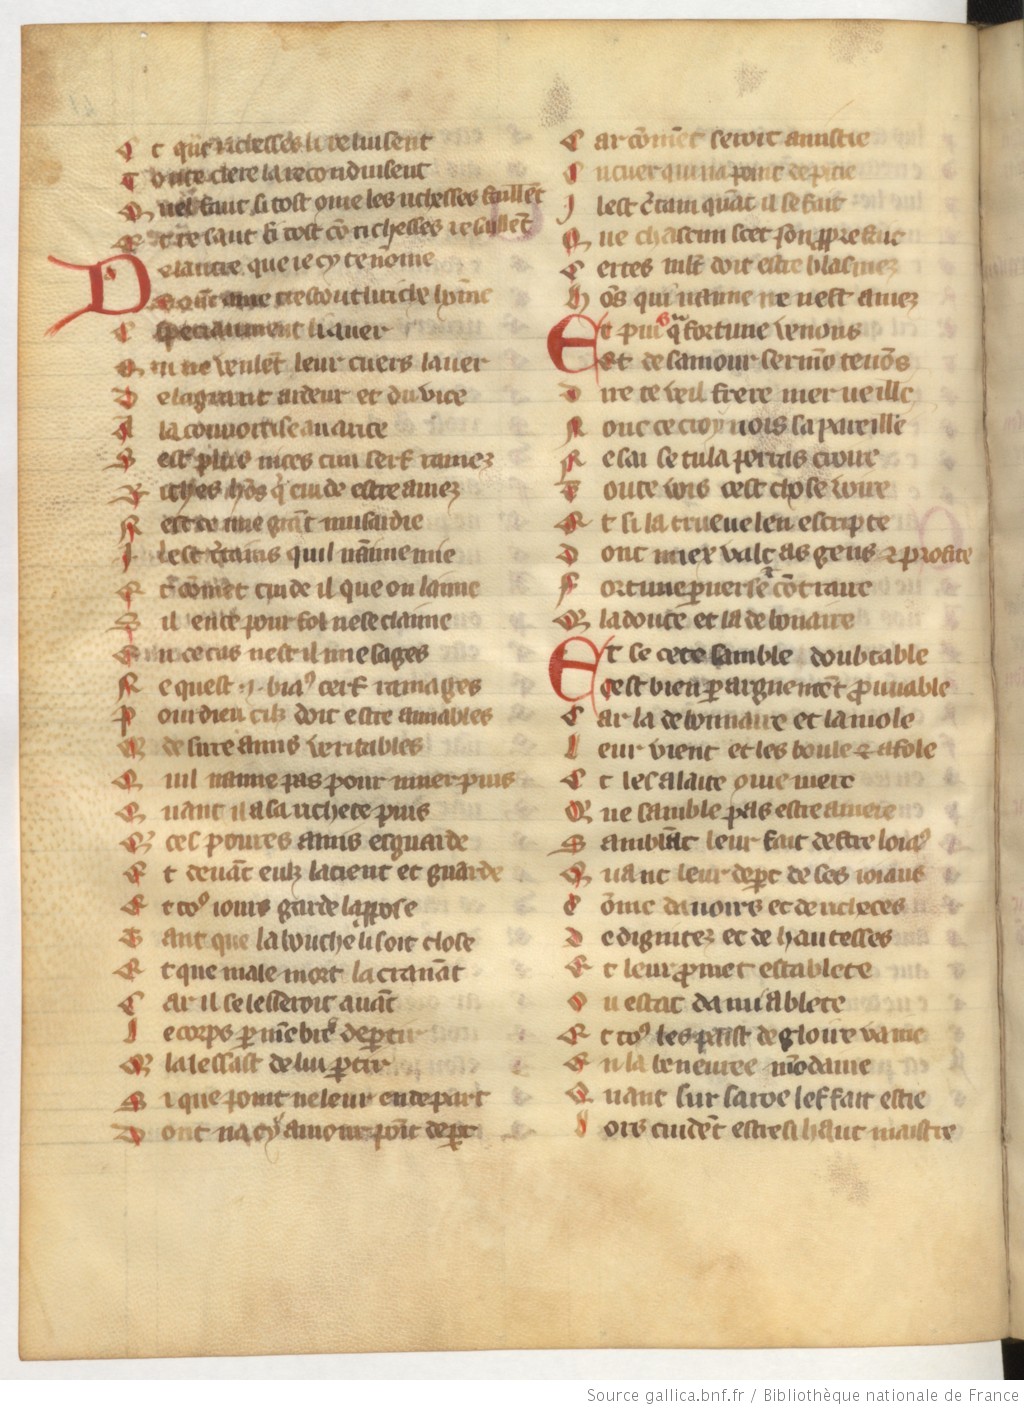 Et que richesses li reluisent
Toute clere la reconduisent
Quel faut si tost que les richesses faillent
Et resaut si tost com richesses resaillent
De lamie que ie cy te nome
Sont ame trestout li riche home
Especiaument li auer
Qui ne veulēt leur cuers lauer
De la grant ardeur et du vice
A la conuoitise auarice
Sest plus nices cun cerf ramez
Riches hōs q̄ cuide estre amez
Nest ce mie grāt musardie
Il est c̄tains quil nāime mie
Et cōmēt cuide il que on laime
Sil en ce pour fol ne se claime
En ce cas nest il mie sages
Ne quest .i. biaꝰ cerf ramages
Pour dieu cilz doit estre amiables
Qui desire amis veritables
Quil naime pas prouuer puis
Quant il a sa richece puis
Ces poures amis esguarde
Et deuāt eulz la tient et guarde
Et toꝰ iours garde la ꝓpose
Tant que la bouche li soit close
Et que male mort la crauāt
Car il se lesseroit auāt
Le corps p̄ mēbres dep̄tir
Quil la lessast de lui p̄tir
Si que point ne leur en depart
Dont na cy amour point de p̄t
Car cōmēt seroit amistie
En cuer qui na point de pitie
Il est c̄tain quāt il se fait
Que chascun scet son ꝓpre fait
Certes mlt doit estre blasmez
Hōs qui naime ne nest amez
Et puis qua fortune venons
Et de samour sermō tenōs
Dire te veil frere merueille
Nonc ce croy nois sa pareille
Ne sai se tu la porras croire
Toute vois cest chose voire
Et si la trueue len escripte
Dont miex valt as gens et profite
Fortune peruerse et cōtraire
Que la douce et la debonaire
Et se ce te samble doubtable
Cest bien p̄ arguement prouuable
Car la debonnaire et la mole
Leur vient et les boule et afole
Et les alaite que mere
Qui ne samble pas estre amere
Samblāt leur fait destre loiaꝰ
Quant leur dep̄t de ses ioiaus
Cōme danoirs et de richeces
De dignitez et de hautesses
Et leur ꝓmet establete
En estat de muablete
Et toꝰ les paist de gloire vaine
En la beneuree mōdaine
Quant sur sa roe les fait estre
Lors cuidēt estre si haut maistre
Source gallica.bnf.fr / Bibliothèque nationale de France